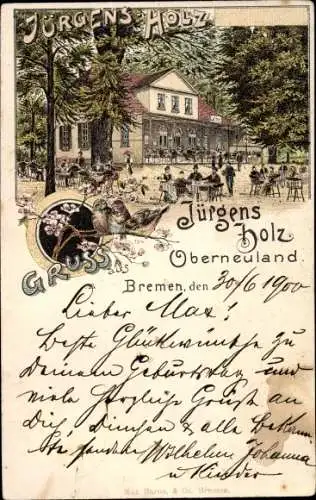 JÜRGENS HOLZ
Jürgens
Holz
Oberneuland.
GRUSS aus
Bremen, den 30/6 1900
Lieber Max!
Beste Glückwünsche zu
deinem Geburtstag und
viele herzliche Grüße an
Dich
& alle Bekann
te senden Wilhelm Johanna
u Kinder
& Co. Bremen.